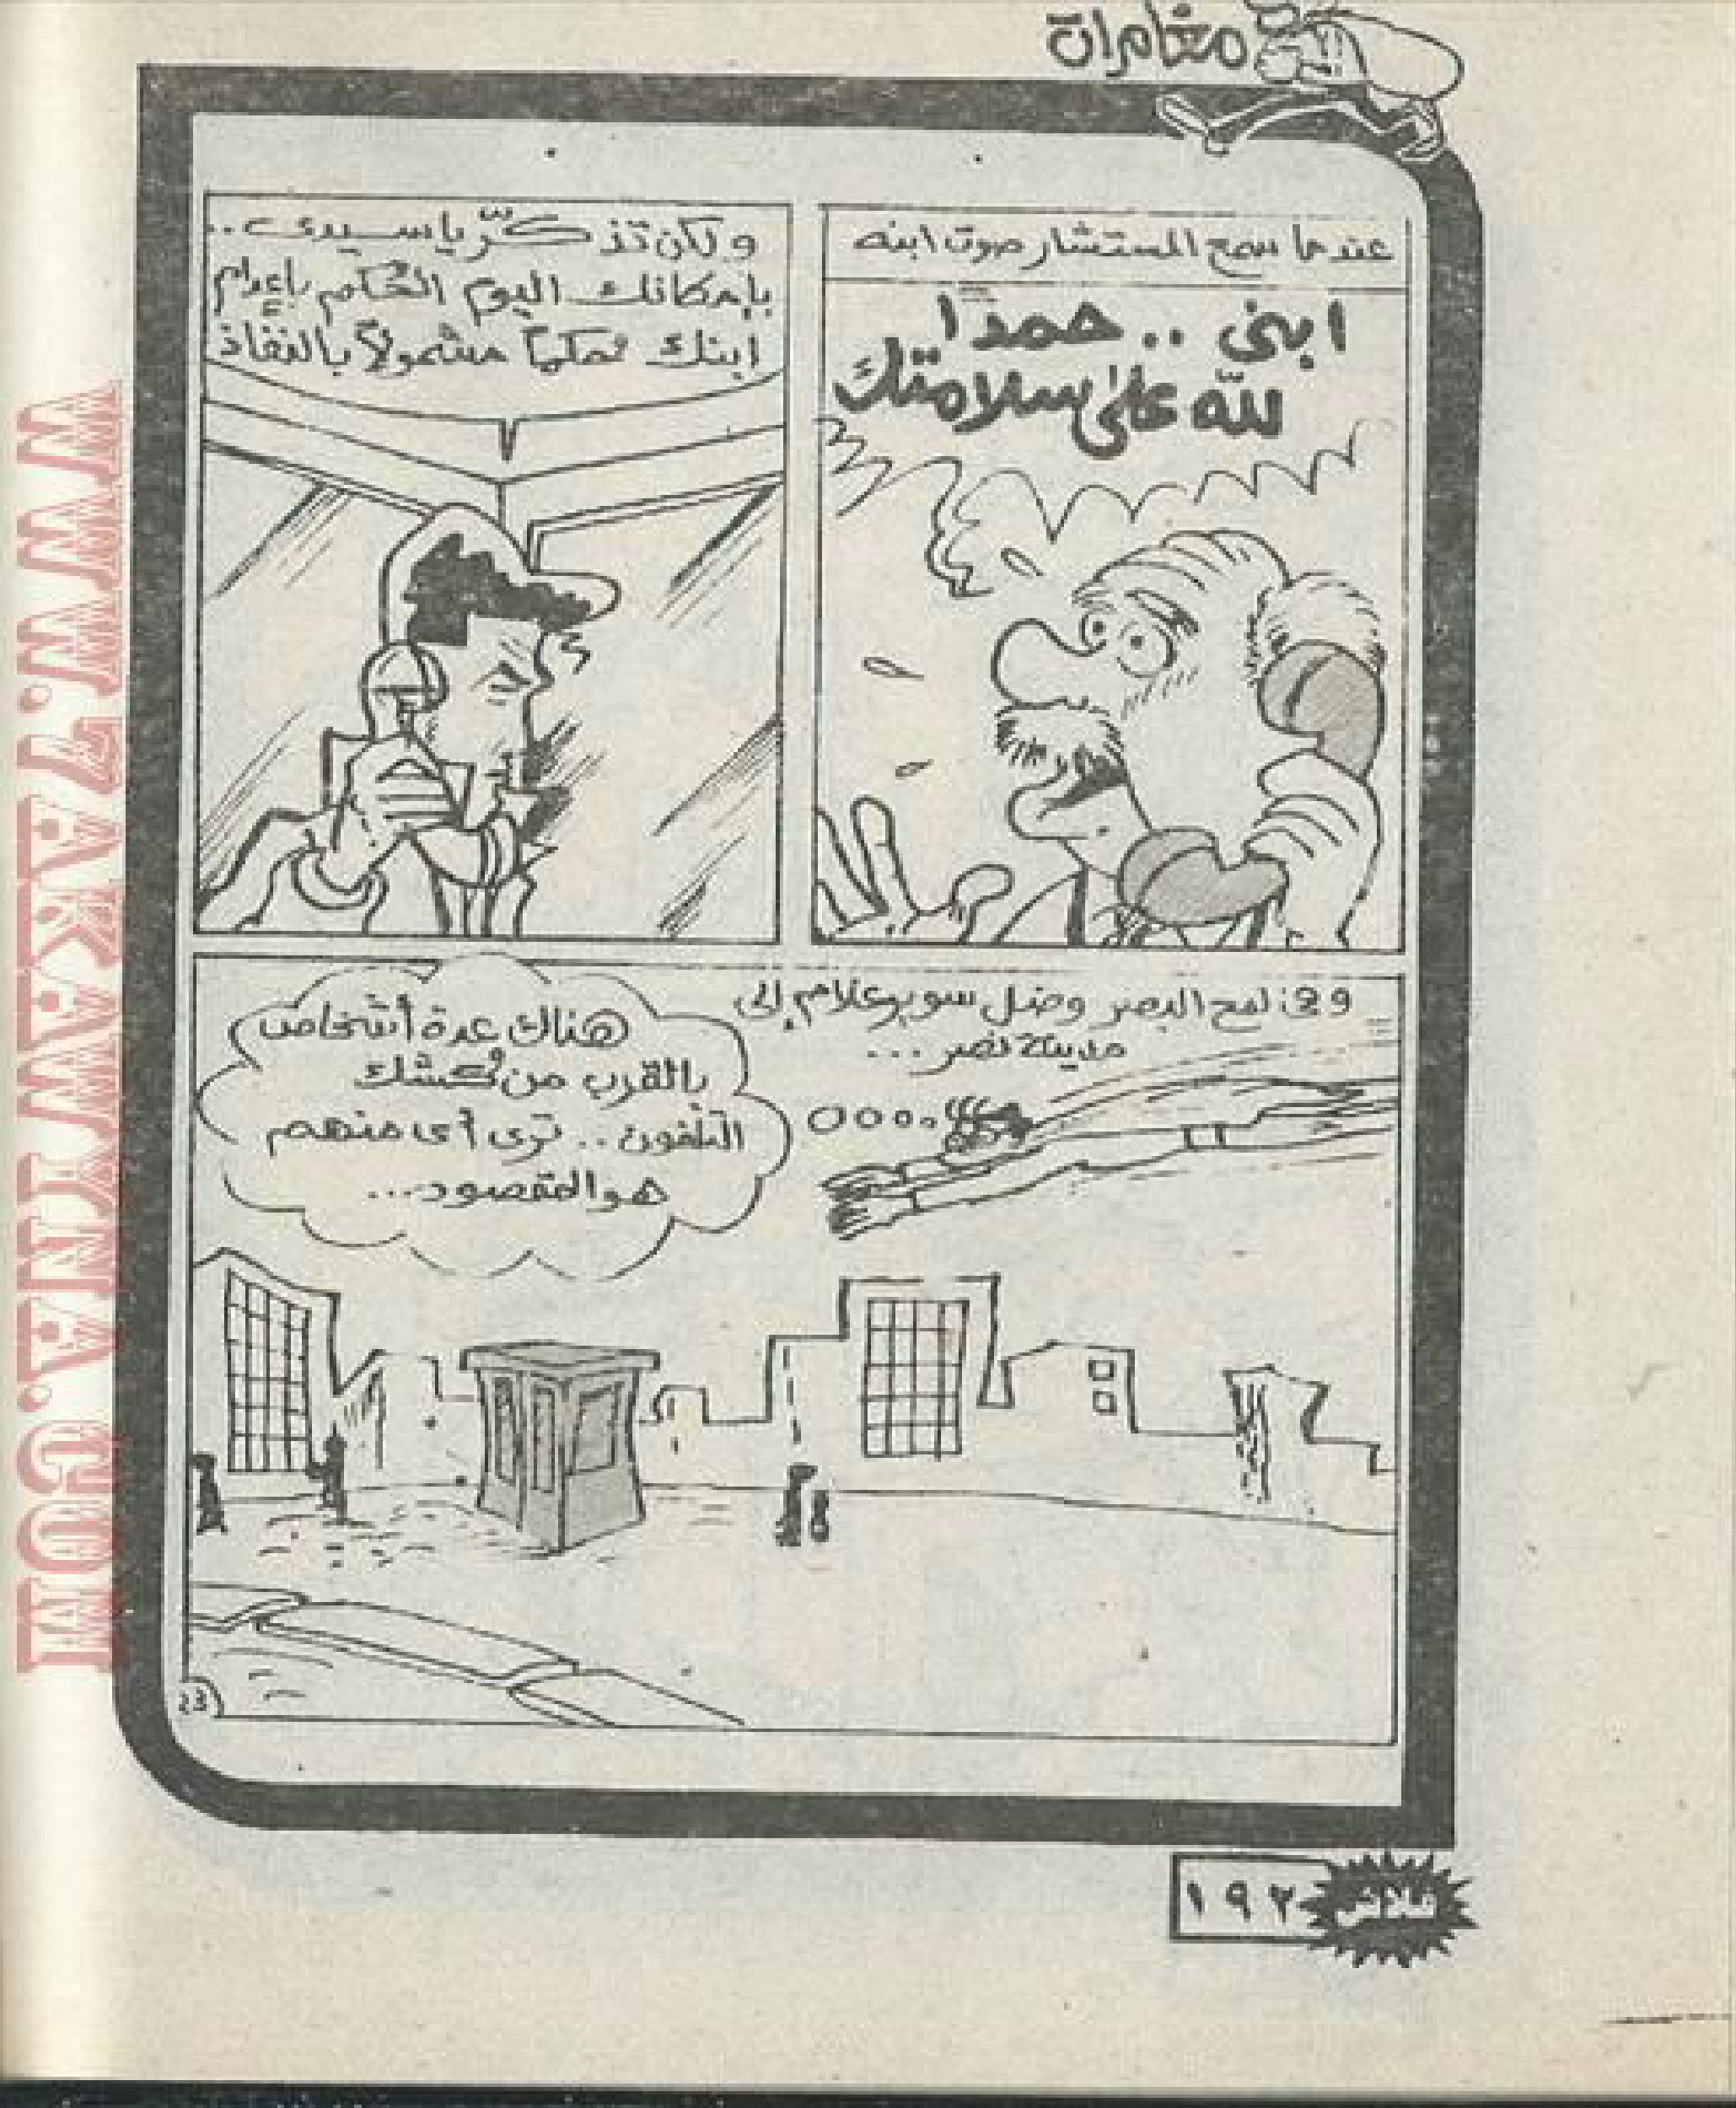 مغامرات
عندما سمع المستشار صوت ابنه
ابنى .. حمدًا
للّه على سلامتك
ولكن تذكّر يا سيدى ..
بإمكانك اليوم الحُكم بإعدام
ابنك حكماً مشمولاً بالنفاذ
وفى لمح البصر وصل سوبر علام إلى
مدينة نصر ...
هناك عدة أشخاص
بالقرب من كُشك
التلفون .. ترى أى منهم
هو المقصود ...
23
فلاش
١٩٢
WWW.7AKAWINA.COM